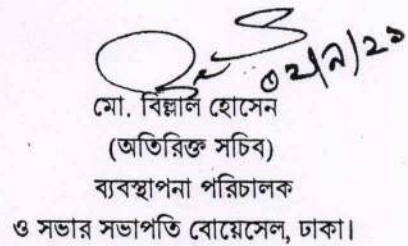 ০২/৯/২১
মো. বিল্লাল হোসেন
(অতিরিক্ত সচিব)
ব্যবস্থাপনা পরিচালক
ও সভার সভাপতি বোয়েসেল, ঢাকা।